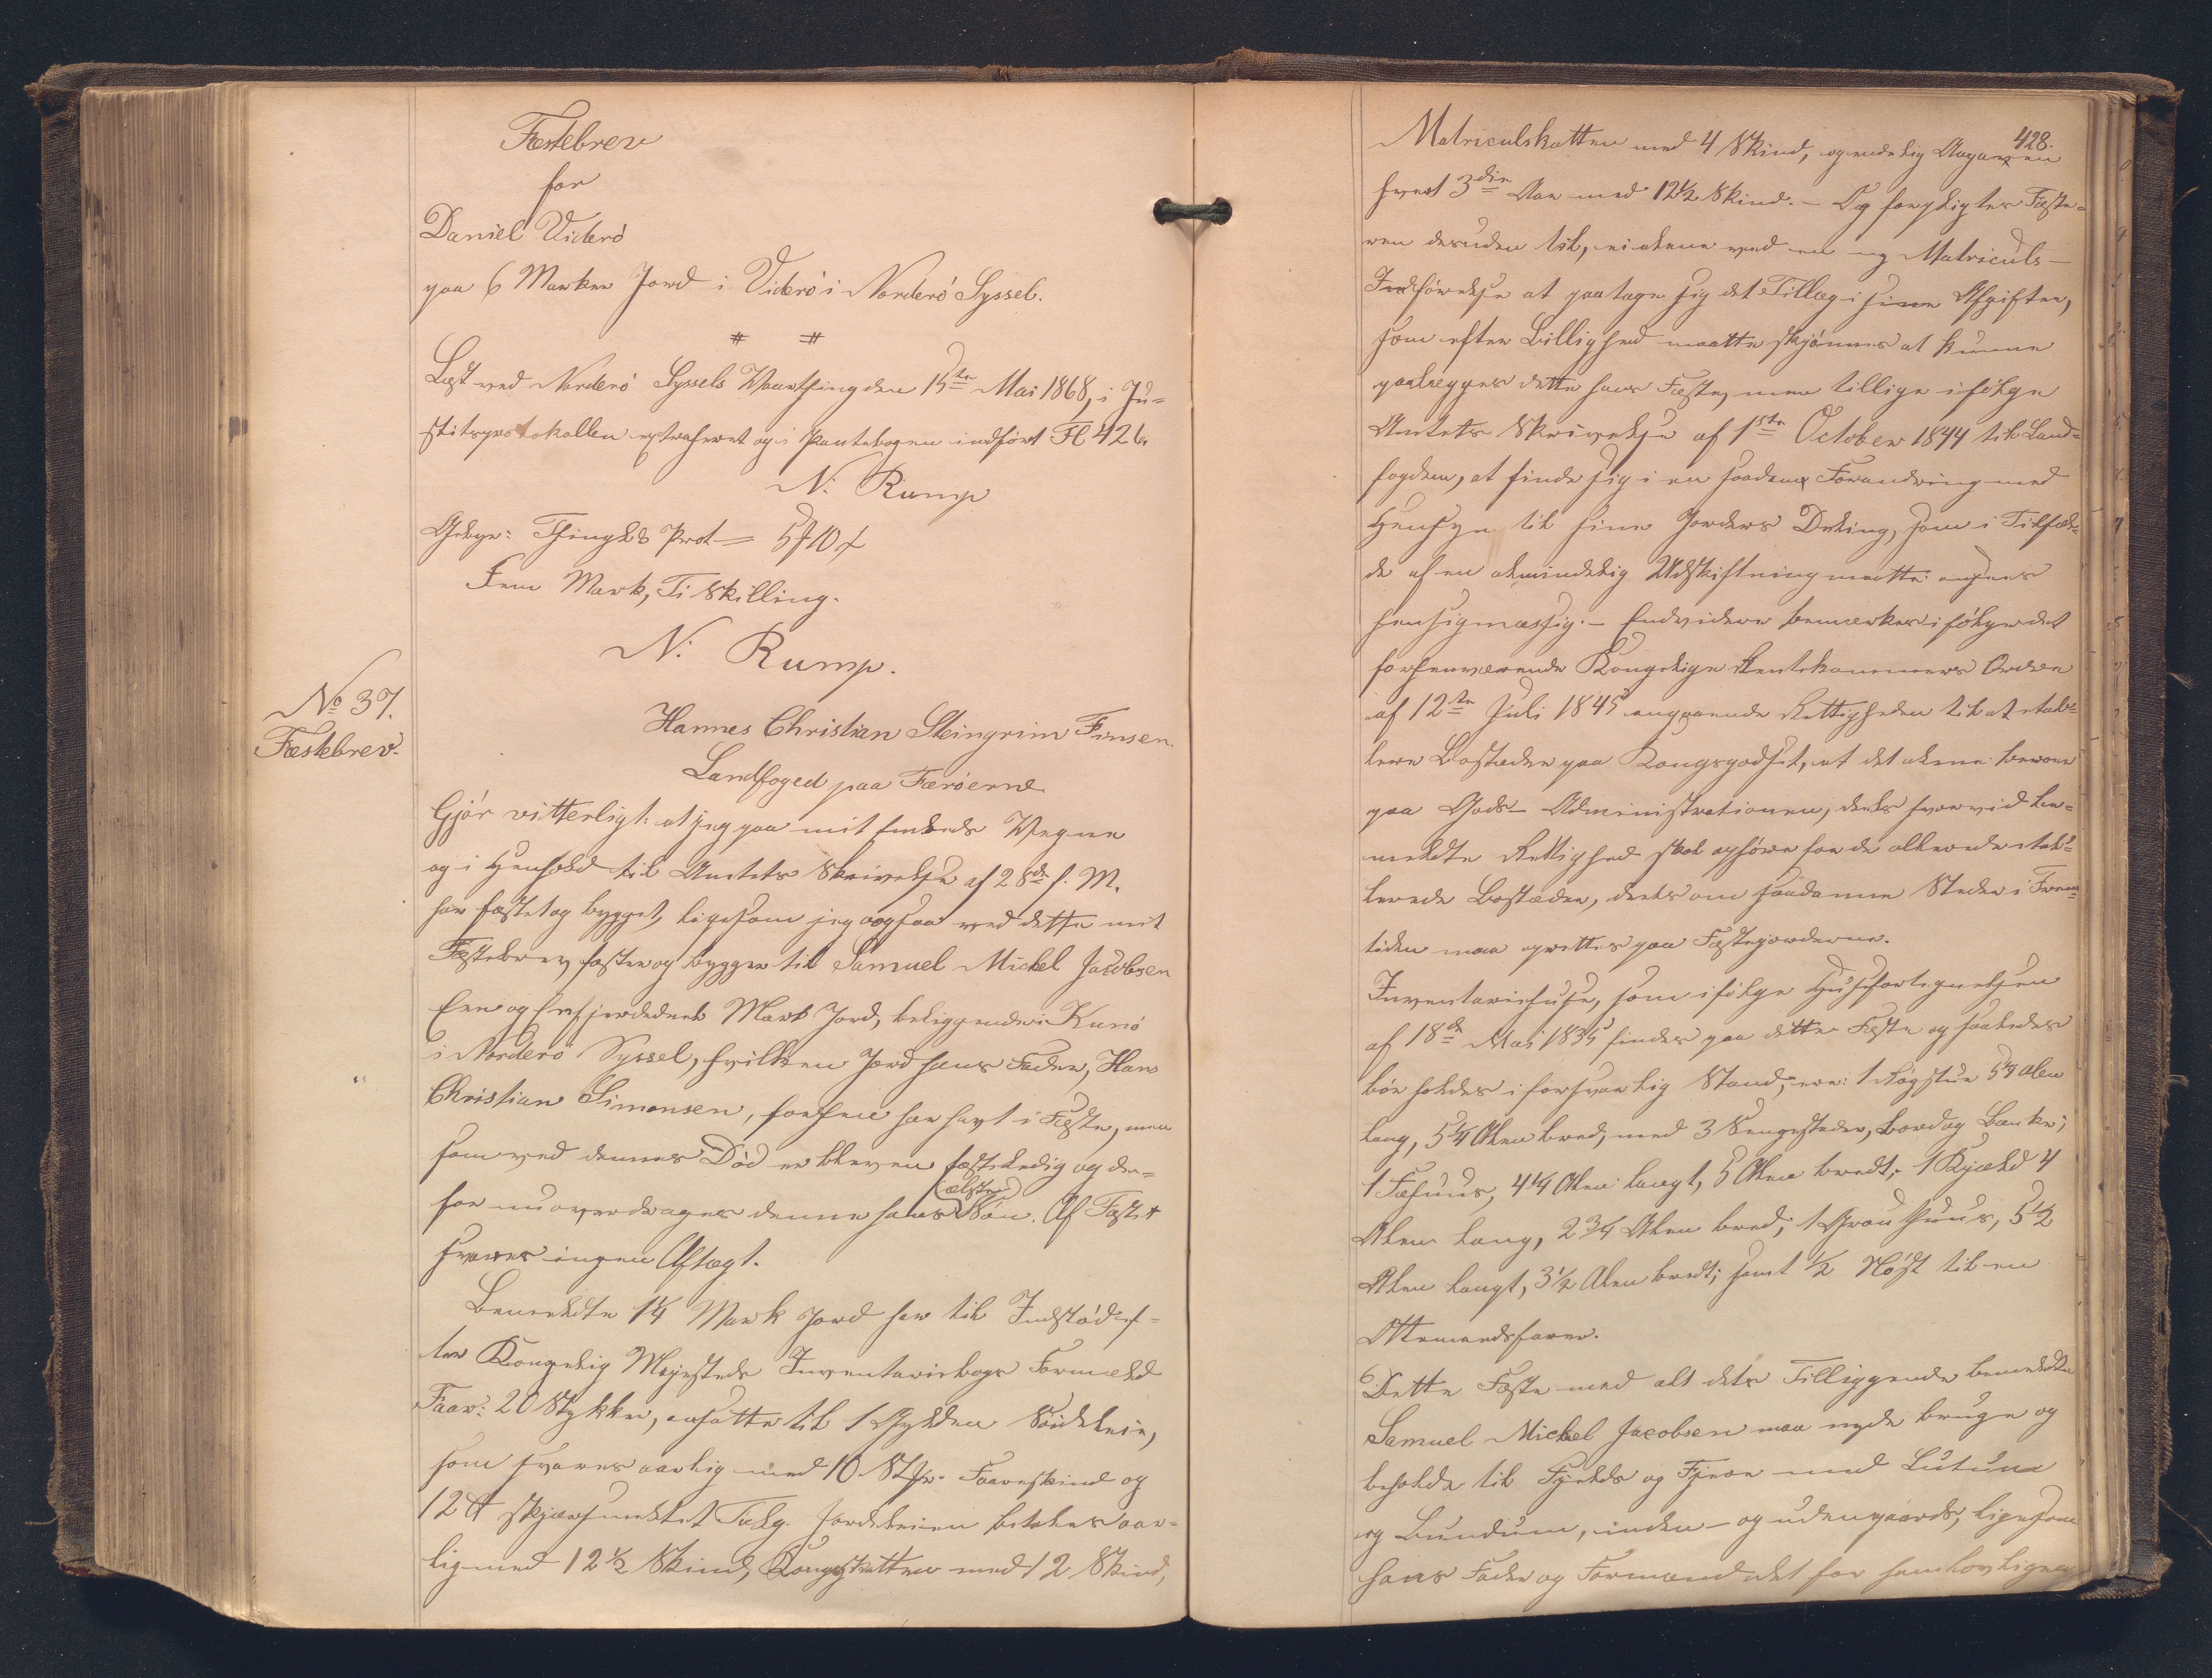 Fæstebrev
for
Daniel Viderö
paa 6 Marker Jord i Viderö i Norderö Syssel.
# #
Læst ved Norderö Syssels Vaarthing den 15de Mai 1868, i Ju-
stitsprotokollen extraheret og i Pantebogen indfört Fl 426.
N. Rump
Gebyr: Thinglæs Prot = 5 10
Fem Mark, Ti Skilling.
N. Rump.
No 37.
Fæstebrev.
Hannes Christian Steingrim Finsen.
Landfoged paa Færöerne
Gjör vitterligt: at jeg paa mit Embeds Vegne
og i Henhold til Amtets Skrivelse af 28de f. M.
har fæstet og bygget, ligesom jeg ogsaa ved dette mit
Fæstebrev fæster og bygger til Samuel Michel Jacobsen
Een og en fjerdedeel Mark Jord, beliggende i Kunö
i Norderö Syssel, hvilken Jord hans Fader, Hans
Christian Simonsen, forhen har havt i Fæste, men
som ved dennes Död er bleven fæsteledig og der-
for nu overdrages denne hans (ælste) Sön. Af Fæstet
svares ingen Aftægt.
Benævnte 1¼ Mark Jord har til Indstöd ef-
ter Kongelig Majestæts Inventariebogs Formeld
Faar: 20 Stykker, ansatte til 1 Gylden Söideleie,
som svares aarlig med 10 Stkr. Faareskind og
12 ℔ skjærsmeltet Talg. Jordeleien betales aar-
lig med 12½ Skind, Kongsskatten med 12 Skind,
428.
Matriculskatten med 4 Skind, og endelig
hvert 3die Aar med 12½ Skind. – Og forpligtes Fæste-
ren desuden til, ei alene ved en ny Matriculs-
Indförelse at paatage sig det Tillæg i sine Afgifter,
som efter Billighed maatte skjönnes at kunne
paalægges dette hans Fæste, men tillige ifölge
Amtets Skrivelse af 1ste October 1844 til Land-
fogden, at finde sig i en saadan Forandring med
Hensyn til sine Jorders Deling, som i Tilfæl-
de af en almindelig Udskiftning maatte ansees
hensigtmæssig. – Endvidere bemærkes ifölge det
forhenværende Kongelige Rentekammers Ordre
af 12te Juli 1845 angaaende Rettigheden til at etab-
lere Bosteder paa Kongsgodset, at det alene beroer
paa Gods-Administrationen, deels hvorvidt be-
meldte Rettighed skal ophöre for de allerede etab-
lerede Bosteder, deels om saadanne Steder i Frem-
tiden maa oprettes paa Fæstejorderne.
Inventariehuse, som ifölge Huusfortegnelsen
af 18de Mai 1835 findes paa dette Fæste og saaledes
bör holdes i forsvarlig Stand, ere: 1 Rögstue 5¾ Alen
lang, 5¼ Alen bred, med 3 Sengesteder, Bord og Bænke;
1 Fæhuus, 4¼ Alen langt, 5 Alen bredt; 1 Kjæld 4
Alen lang, 2¾ Alen bred; 1 Grouthuus, 5½
Alen langt, 3½ Alen bredt; samt ½ Nöst til en
Ottemandsfarer.
Dette Fæste med alt dets Tilliggende benævnte
Samuel Michel Jacobsen maa nyde bruge og
beholde til Fjelds og Fjære med Lutum
og Lundum, inden- og udengaards, ligesom
hans Fader og Formand det för ham lovligen